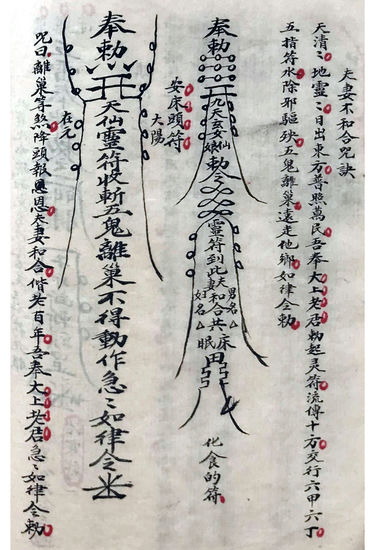 夫妻不和合咒訣
天清〻地靈〻日出東方普照萬民吾奉大上老君勅起灵符流傳十方交行六甲六丁
五猖符水除邪驅殃五鬼離巢遠走他鄉如律令勅
奉勅 九天玄女仙娘勅令 靈符到此夫妻和合共床眠
男名△
女名△
化食的符
安床頭符
太陽
奉勅 天仙靈符收斬五鬼離巢不得動作急〻如律令
在元
咒曰離巢等煞陣頭報恩恩夫妻和合偕老百年吾奉大上老君急〻如律令勅